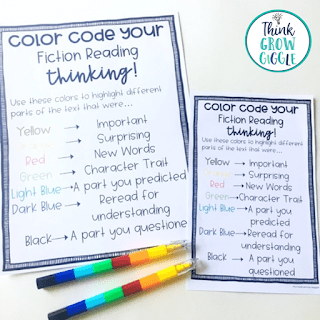 COLOR CODE YOUR
Fiction Reading
thinking!
Use these colors to highlight different
parts of the text that were...
Yellow → Important
→ Surprising
Red → New Words
Green → Character Trait
Light Blue → A part you predicted
Dark Blue → Reread for
understanding
Black → A part you questione
THINK
GROW
GIGGLE
COLOR CODE YOUR
Fiction Reading
thinking!
Use these colors to highlight different
parts of the text that were....
Yellow → Important
→ Surprising
Red → New Words
Green → Character Trait
Light Blue → A part you
predicted
Dark Blue → Reread for
understanding
Black → A part you
questioned